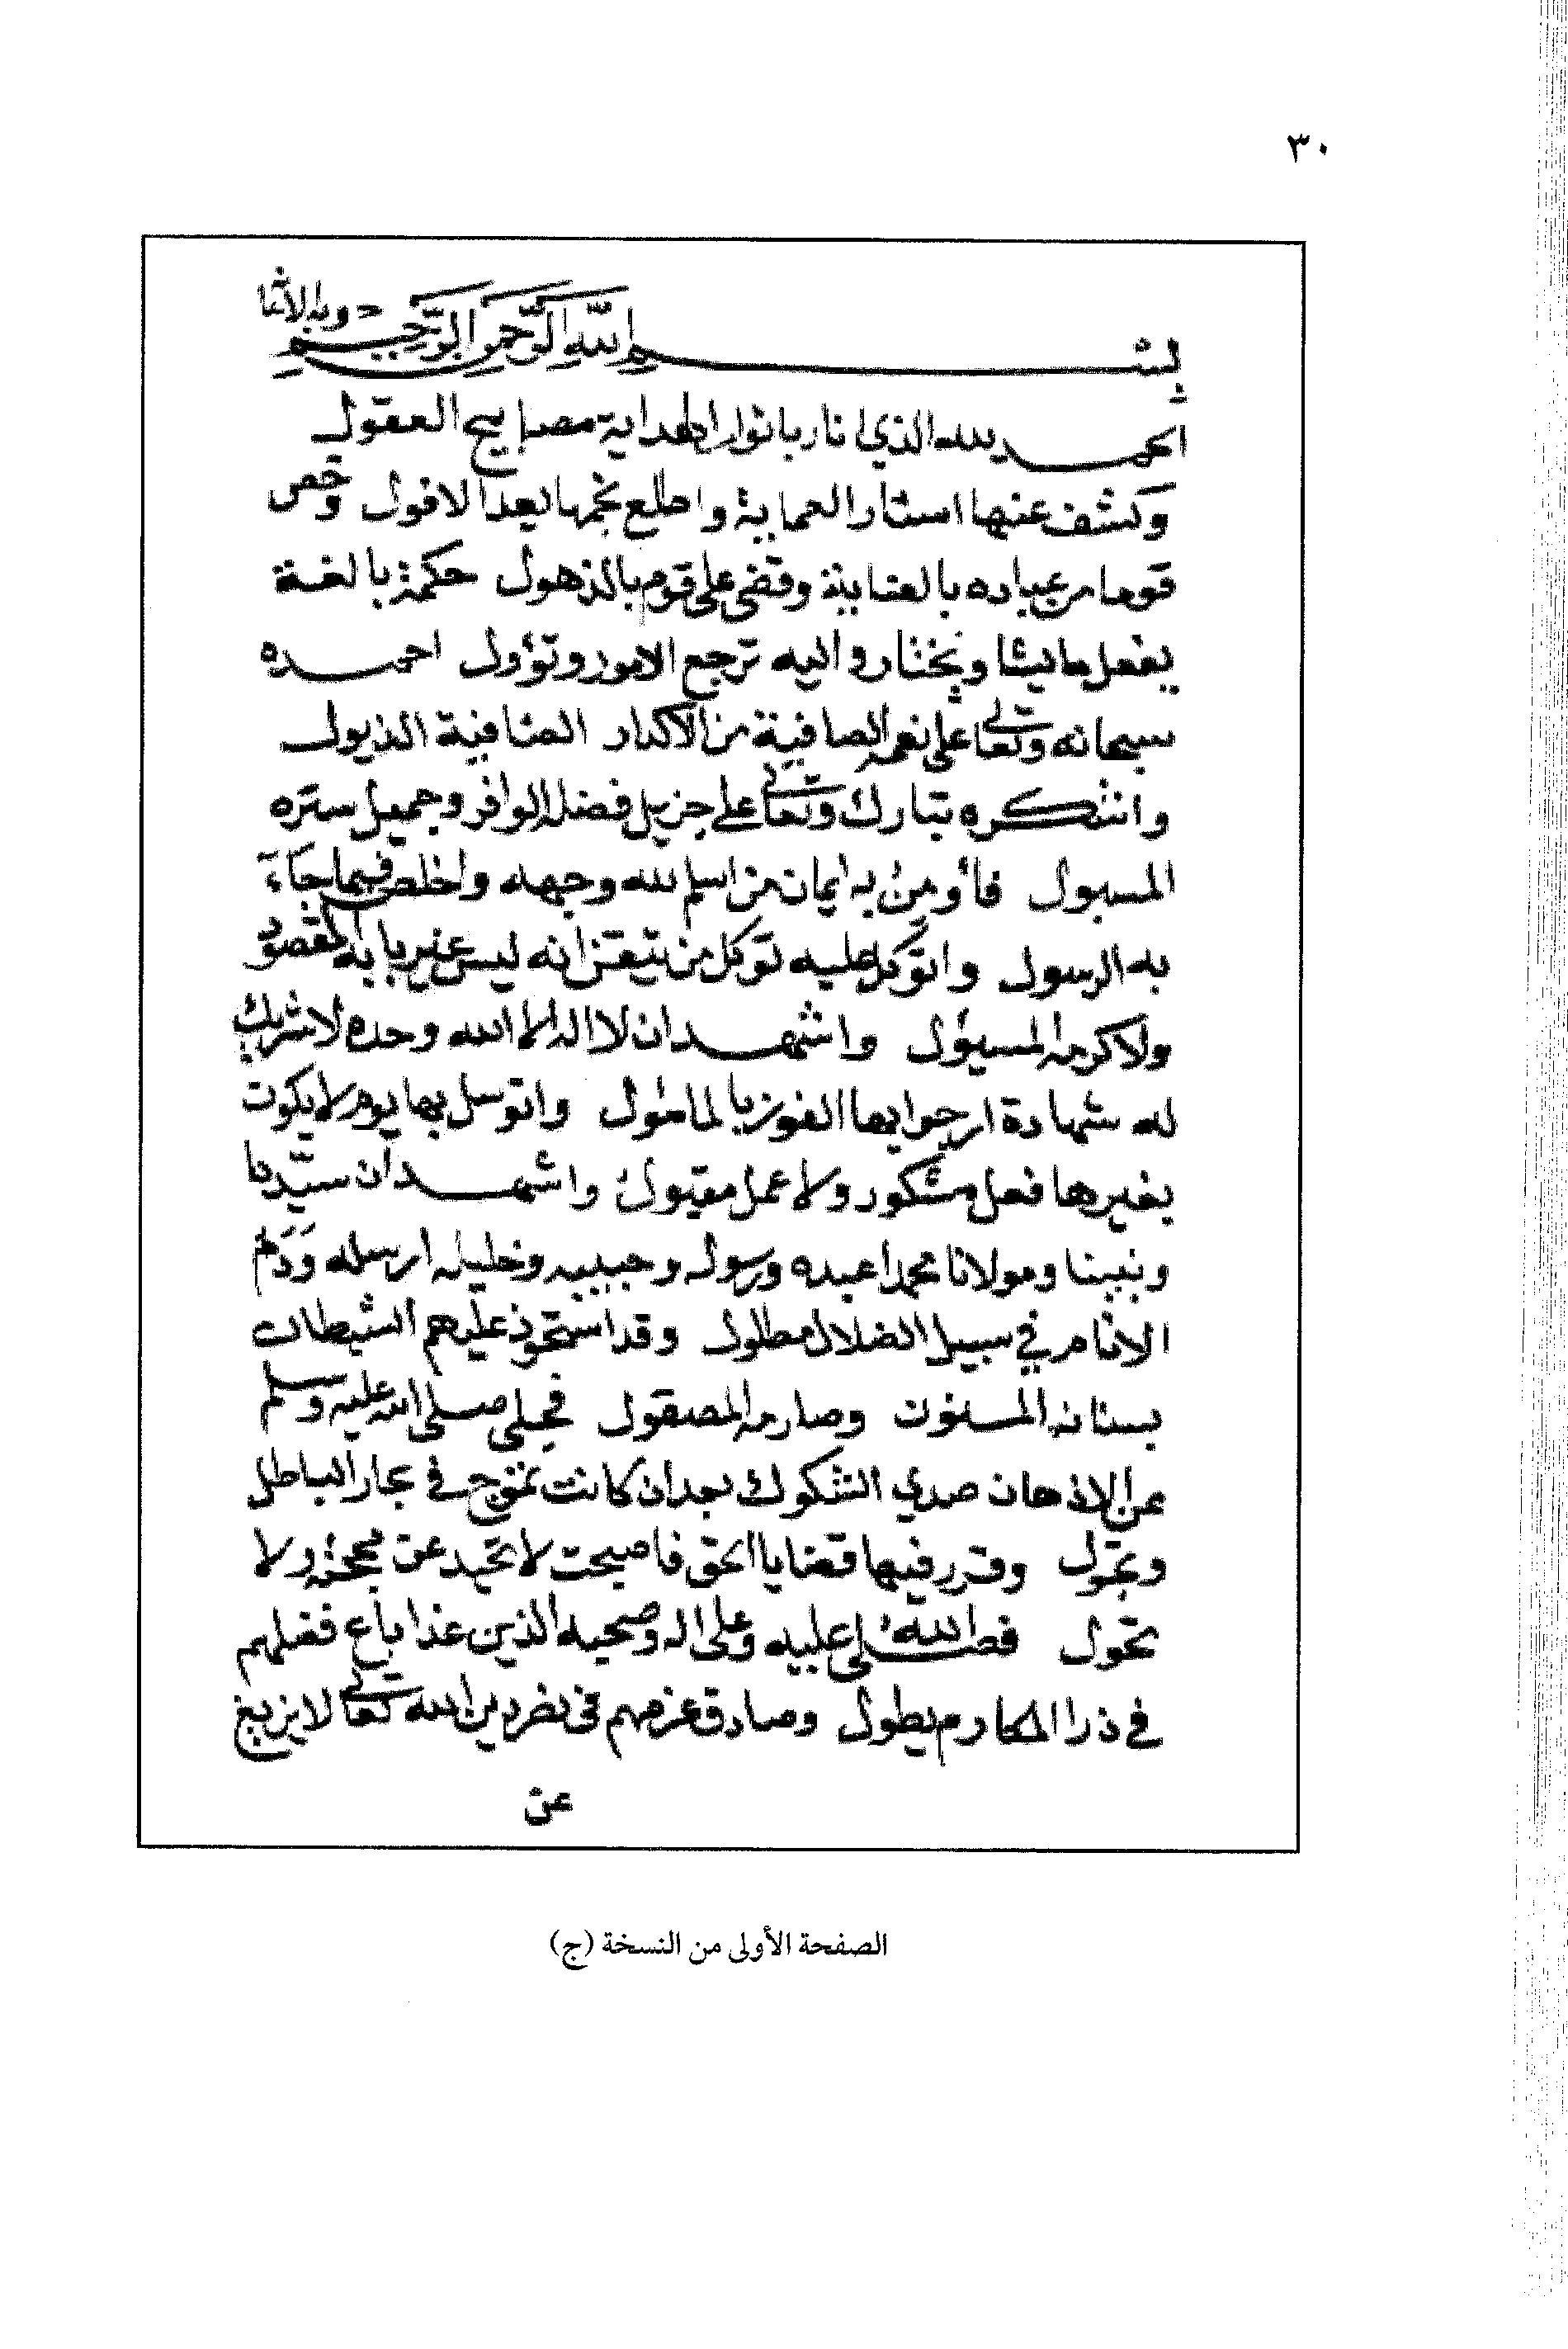 ٣٠
بسم الله الرحمن الرحيم وبه
الحمد لله الذي انار بانوار الهداية مصابيح العقول
وكشف عنها استار العماية واطلع نجمها بعد الافول وخص
قوما من عباده بالعناية وقضى على قوم بالذهول حكمة بالغة
يفعل ما يشا ويختار واليه ترجع الامور وتؤول احمده
سبحانه وتعالى على نعمه الصافية من الاكدار الضافية الذيول
واشكره تبارك وتعالى على جزيل فضله الوافر وجميل ستره
المسبول فأومن به ايمان من اسلم لله وجهه واخلص فيما جاء
به الرسول واتوكل عليه توكل من تيقن انه ليس غير بابه المقصود
ولا كرمه المسؤل واشهد ان لا اله الا الله وحده لا شريك
له شهادة ارجوا بها الفوز بالمامول واتوسل بها يوم لا يكون
بغيرها فعل مشكور ولا عمل مقبول واشهد ان سيدنا
ونبينا ومولانا محمدا عبده ورسوله وحبيبه وخليله ارسله ودم
الانام في سبيل الضلال مطلول وقد استحوذ عليهم الشيطان
بسنانه المسنون وصارمه المصقول فجلى صلى الله عليه وسلم
عن الاذهان صدي الشكوك بعد ان كانت تموج في بحار الباطل
وتجول وقرر فيها قضايا الحق فاصبحت لا تحيد عن ولا
تحول فصلى الله عليه وعلى اله وصحبه الذين غدا باع فضلهم
في ذرا المكارم يطول وصادق عزمهم في نصر دين الله تعالى لا يزيغ
عن
الصفحة الأولى من النسخة (ج)